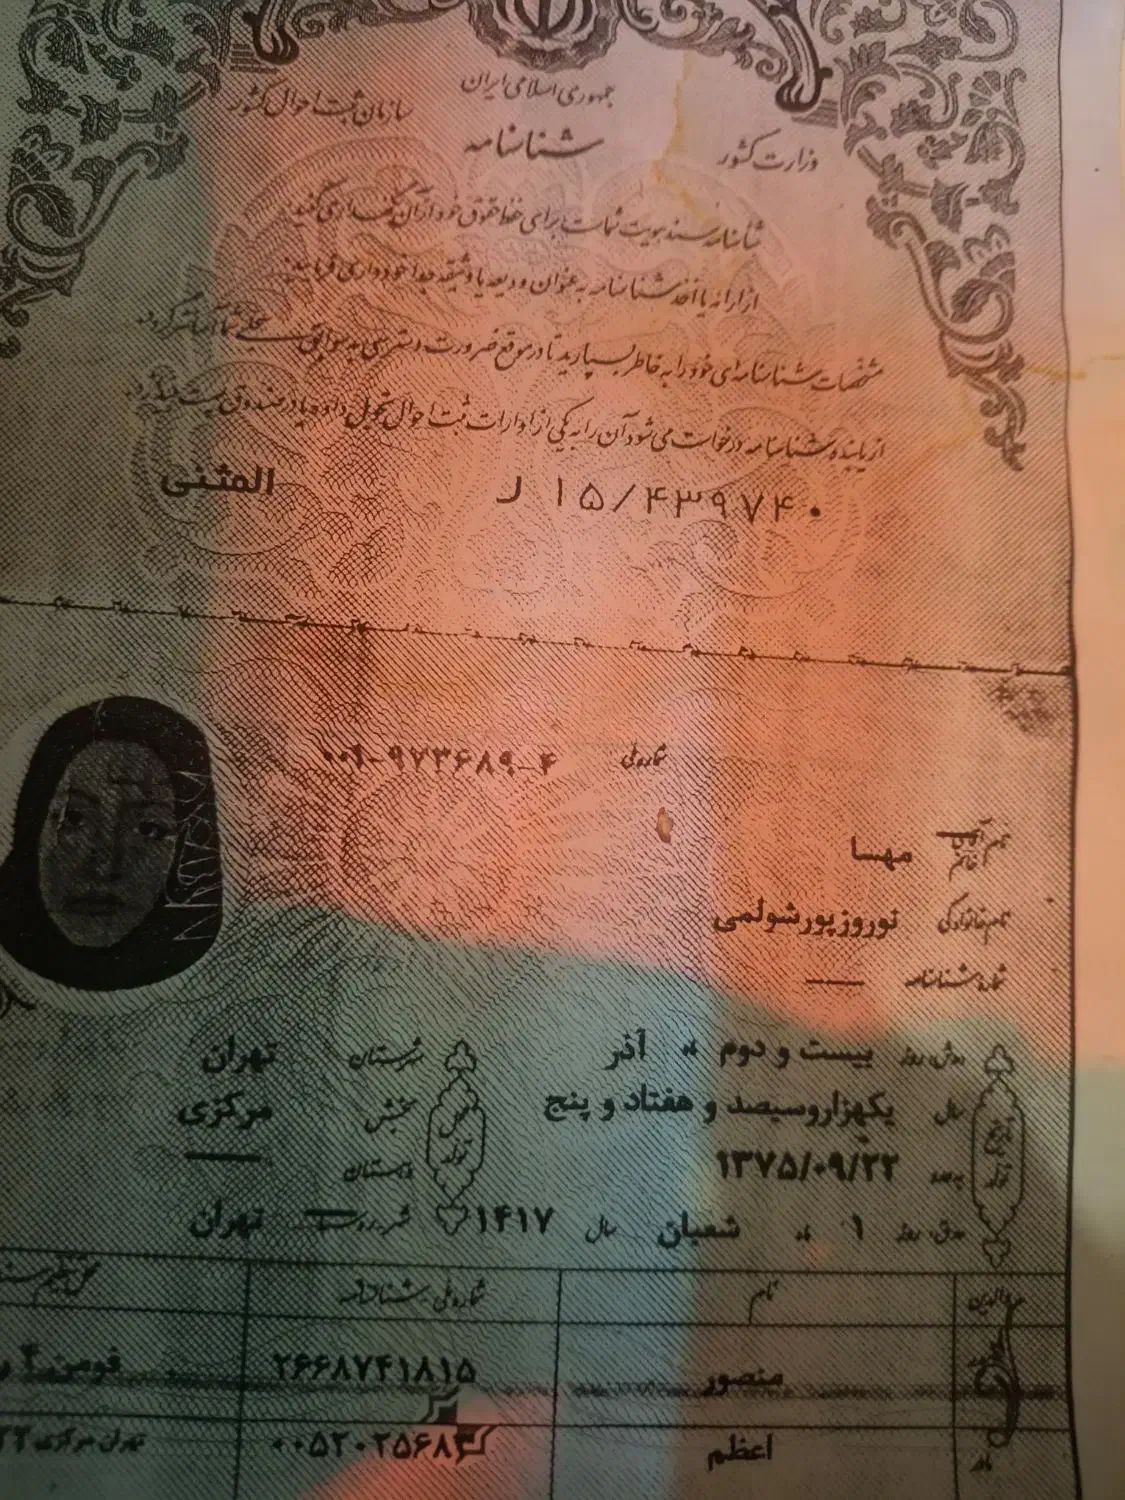 جمهوری اسلامی ایران
وزارت کشور
سازمان ثبت احوال کشور
شناسنامه
شناسنامه سند هویت شماست برای حفظ حقوق خود از آن نگهداری کنید.
از ارائه یا اخذ شناسنامه به عنوان ودیعه یا وثیقه جداً خودداری فرمایید.
مشخصات شناسنامه‌ای خود را به خاطر بسپارید تا در موقع ضرورت دسترسی به سوابق سجلی شما آسانتر گردد.
از یابنده شناسنامه درخواست می‌شود آن را به یکی از ادارات ثبت احوال تحویل داده یا در صندوق پست بیندازد.
۱۵/۴۳۹۷۴۰ ر
المثنی
شماره ملی ۰۰۹-۹۷۳۶۸۹-۴
نام آقای خانم مهسا
نام خانوادگی نوروزپورشولمی
شماره شناسنامه ——
تاریخ تولد
ش، روز بیست و دوم ماه آذر
سال یکهزاروسیصد و هفتاد و پنج
به عدد ۱۳۷۵/۰۹/۲۲
ق، روز ۱ ماه شعبان سال ۱۴۱۷
محل تولد
شهرستان تهران
بخش مرکزی
دهستان ——
شهر روستا تهران
والدین
نام
شماره ملی شناسنامه
منصور
۲۶۶۸۷۴۱۸۱۵
فومن
مادر
اعظم
۰۰۵۲۰۲۵۶۸۳
تهران مرکزی